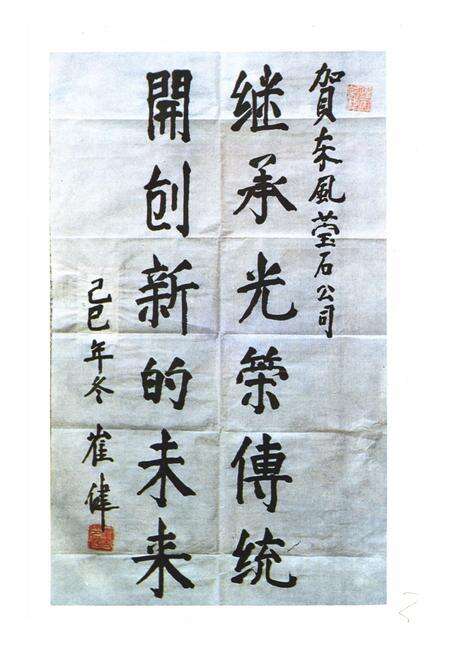 賀东風莹石公司
继承光荣傳统
開创新的未来
己巳年冬 崔健